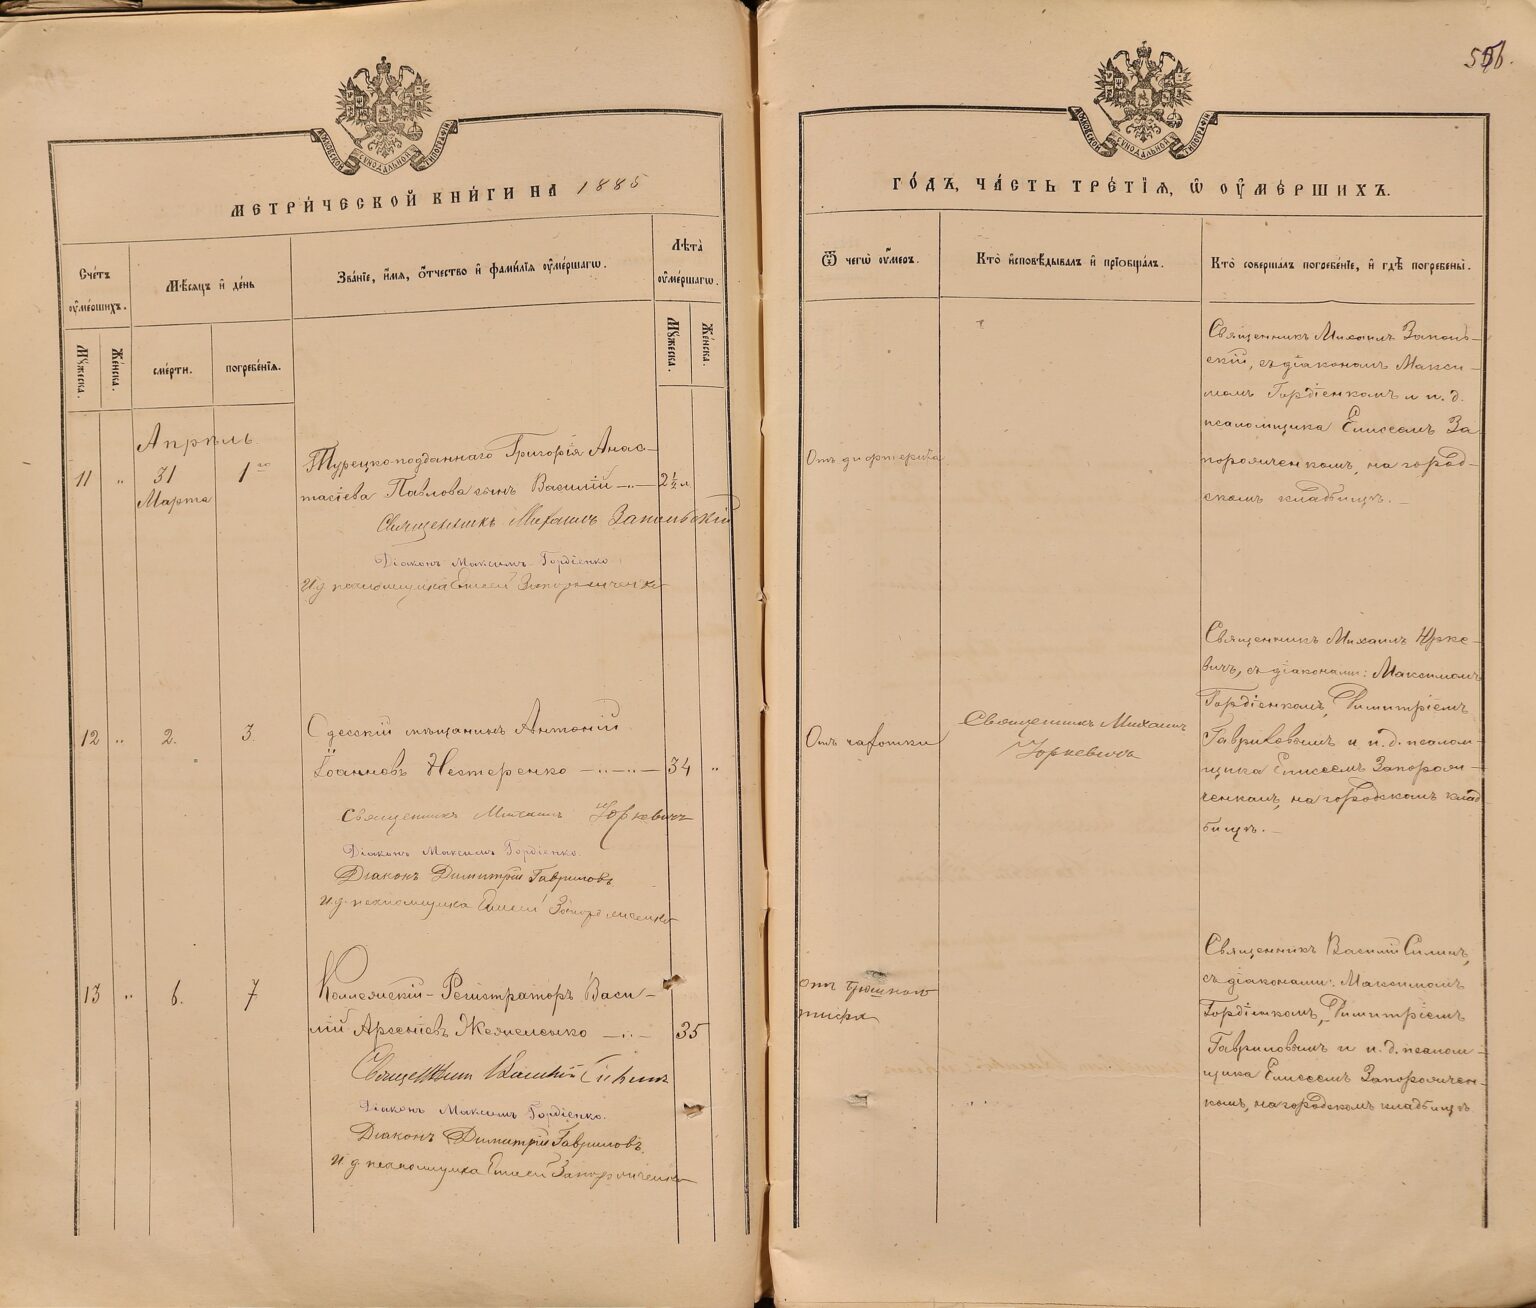 556.
МОСКОВСКОЙ СѴНОДАЛЬНОЙ ТИПОГРАФІИ
МЕТРИ́ЧЕСКОЙ КНИ́ГИ НА 1885
Сче́тъ ᲂу҆ме́ршихъ.
Мѣ́сяцъ и҆ де́нь
Зва́нїе, и҆́мѧ, ѻ҆́тчество и҆ фами́лїѧ ᲂу҆ме́ршагѡ.
Лѣта̀ ᲂу҆ме́ршагѡ.
Мꙋ́жеска.
Же́нска.
сме́рти.
погребе́нїѧ.
Мꙋ́жеска.
Же́нска.
Апрѣль
11 " 31 Марта 1го
Турецко-подданнаго Григорія Анас-
тасіева Павлова сынъ Василій —"— 2½ л
Священникъ Михаилъ Запольскій
Діаконъ Максимъ Гордіенко
И. д. псаломщика Елисей Запорожченко
12 " 2. 3.
Одесскій мѣщанинъ Антоній
Іоанновъ Нестеренко —"—"— 34 "
Священникъ Михаилъ Юркевичъ
Діаконъ Максимъ Гордіенко.
Діаконъ Димитрій Гавриловъ
И. д. псаломщика Елисей Запорожченко
13 " 6. 7
Коллежскій-Регистраторъ Васи-
лій Арсеніевъ Желеленко —"— 35
Священникъ Василій
Діаконъ Максимъ Гордіенко.
Діаконъ Димитрій Гавриловъ.
И. д. псаломщика Елисей Запорожченко
МОСКОВСКОЙ СѴНОДАЛЬНОЙ ТИПОГРАФІИ
ГО́ДЪ, ЧА́СТЬ ТРЕ́ТІЯ, Ѡ҆ ОУ҆МЕ́РШИХЪ.
Ѿ чегѡ̀ ᲂу҆́меръ.
Кто̀ и҆сповѣ́дывалъ и҆ прїѡбща́лъ.
Кто̀ соверша́лъ погребе́нїе, и҆ гдѣ̀ погребены̀.
Отъ дифтерита
Священникъ Михаилъ Заполь-
скій, съ діакономъ Макси-
момъ Гордіенкомъ и и. д.
псаломщика Елисеемъ За-
порожченкомъ, на город-
скомъ кладбищѣ. —
Отъ чахотки
Священникъ Михаилъ
Юркевичъ
Священникъ Михаилъ Юрке-
вичъ, съ діаконами: Максимомъ
Гордіенкомъ, Димитріемъ
Гавриловымъ и и. д. псалом-
щика Елисеемъ Запорож-
ченкомъ, на городскомъ клад-
бищѣ. —
Отъ брюшного
тифа
Священникъ Василій
съ діаконами: Максимомъ
Гордіенкомъ, Димитріемъ
Гавриловымъ и и. д. псалом-
щика Елисеемъ Запорожчен-
комъ, на городскомъ кладбищѣ